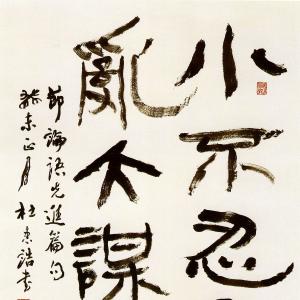 小不忍
亂大謀
節論語先進篇句
癸未正月 杜忠誥書